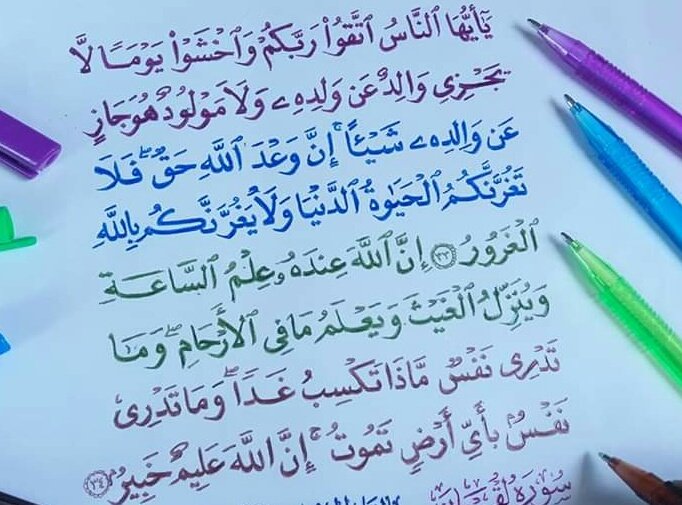 يَٰٓأَيُّهَا ٱلنَّاسُ ٱتَّقُوا۟ رَبَّكُمْ وَٱخْشَوْا۟ يَوْمًا لَّا
يَجْزِى وَالِدٌ عَن وَلَدِهِۦ وَلَا مَوْلُودٌ هُوَ جَازٍ
عَن وَالِدِهِۦ شَيْـًٔا ۚ إِنَّ وَعْدَ ٱللَّهِ حَقٌّ ۖ فَلَا
تَغُرَّنَّكُمُ ٱلْحَيَوٰةُ ٱلدُّنْيَا وَلَا يَغُرَّنَّكُم بِٱللَّهِ
ٱلْغَرُورُ ٣٣ إِنَّ ٱللَّهَ عِندَهُۥ عِلْمُ ٱلسَّاعَةِ
وَيُنَزِّلُ ٱلْغَيْثَ وَيَعْلَمُ مَا فِى ٱلْأَرْحَامِ ۖ وَمَا
تَدْرِى نَفْسٌ مَّاذَا تَكْسِبُ غَدًا ۖ وَمَا تَدْرِى
نَفْسٌۢ بِأَىِّ أَرْضٍ تَمُوتُ ۚ إِنَّ ٱللَّهَ عَلِيمٌ خَبِيرٌۢ ٣٤
سُورَة لُقْمَان